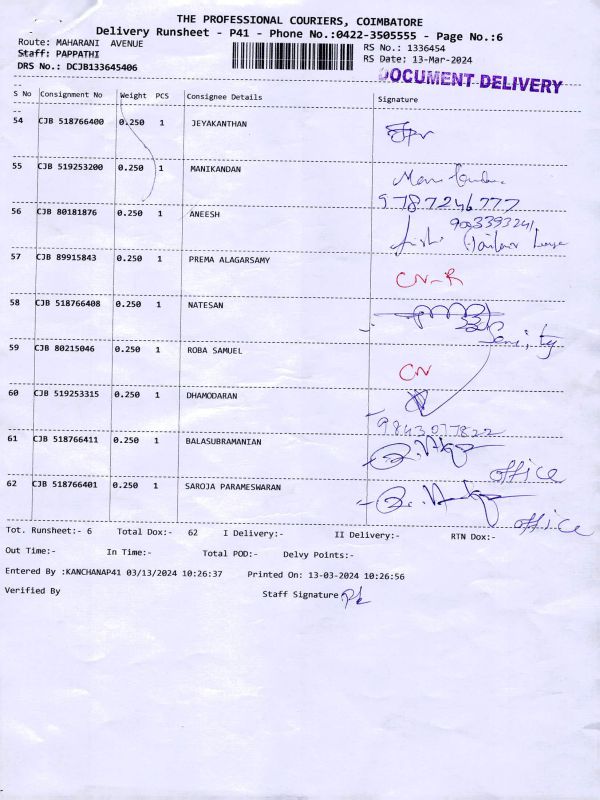 THE PROFESSIONAL COURIERS, COIMBATORE
Delivery Runsheet - P41 - Phone No.:0422-3505555 - Page No.:6
Route: MAHARANI AVENUE RS No.: 1336454
Staff: PAPPATHI RS Date: 13-Mar-2024
DRS No.: DCJB133645406
DOCUMENT DELIVERY
S No Consignment No Weight PCS Consignee Details Signature
54 CJB 518766400 0.250 1 JEYAKANTHAN
55 CJB 519253200 0.250 1 MANIKANDAN
9787246777
56 CJB 80181876 0.250 1 ANEESH 9003393241
57 CJB 89915843 0.250 1 PREMA ALAGARSAMY CN-R
58 CJB 518766408 0.250 1 NATESAN
59 CJB 80215046 0.250 1 ROBA SAMUEL CN
60 CJB 519253315 0.250 1 DHAMODARAN
9843077822
61 CJB 518766411 0.250 1 BALASUBRAMANIAN office
62 CJB 518766401 0.250 1 SAROJA PARAMESWARAN office
Tot. Runsheet:- 6 Total Dox:- 62 I Delivery:- II Delivery:- RTN Dox:-
Out Time:- In Time:- Total POD:- Delvy Points:-
Entered By :KANCHANAP41 03/13/2024 10:26:37 Printed On: 13-03-2024 10:26:56
Verified By Staff Signature